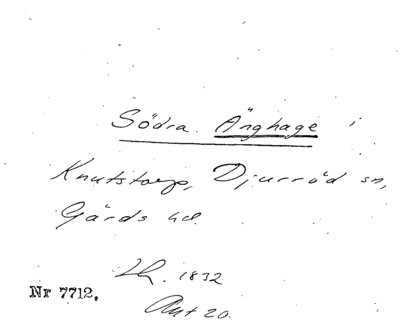 Södra Änghage i
Knutstorp, Djurröd sn,
Gärds hd.
Lh. 1832
Nr 7712.
Akt 20.